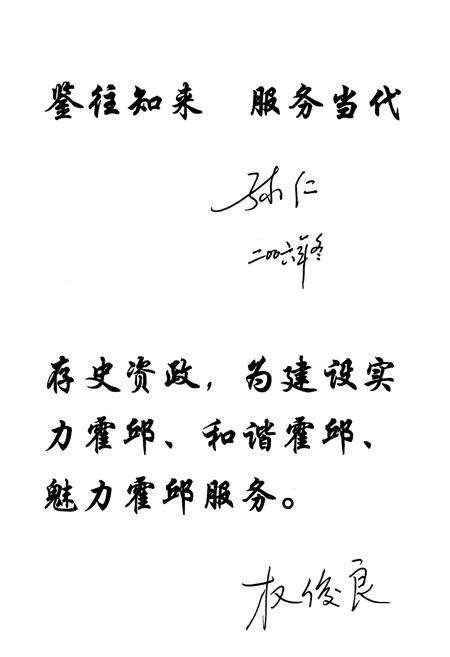 鉴往知来 服务当代
仁
二〇〇六年冬
存史资政，为建设实
力霍邱、和谐霍邱、
魅力霍邱服务。
权俊良